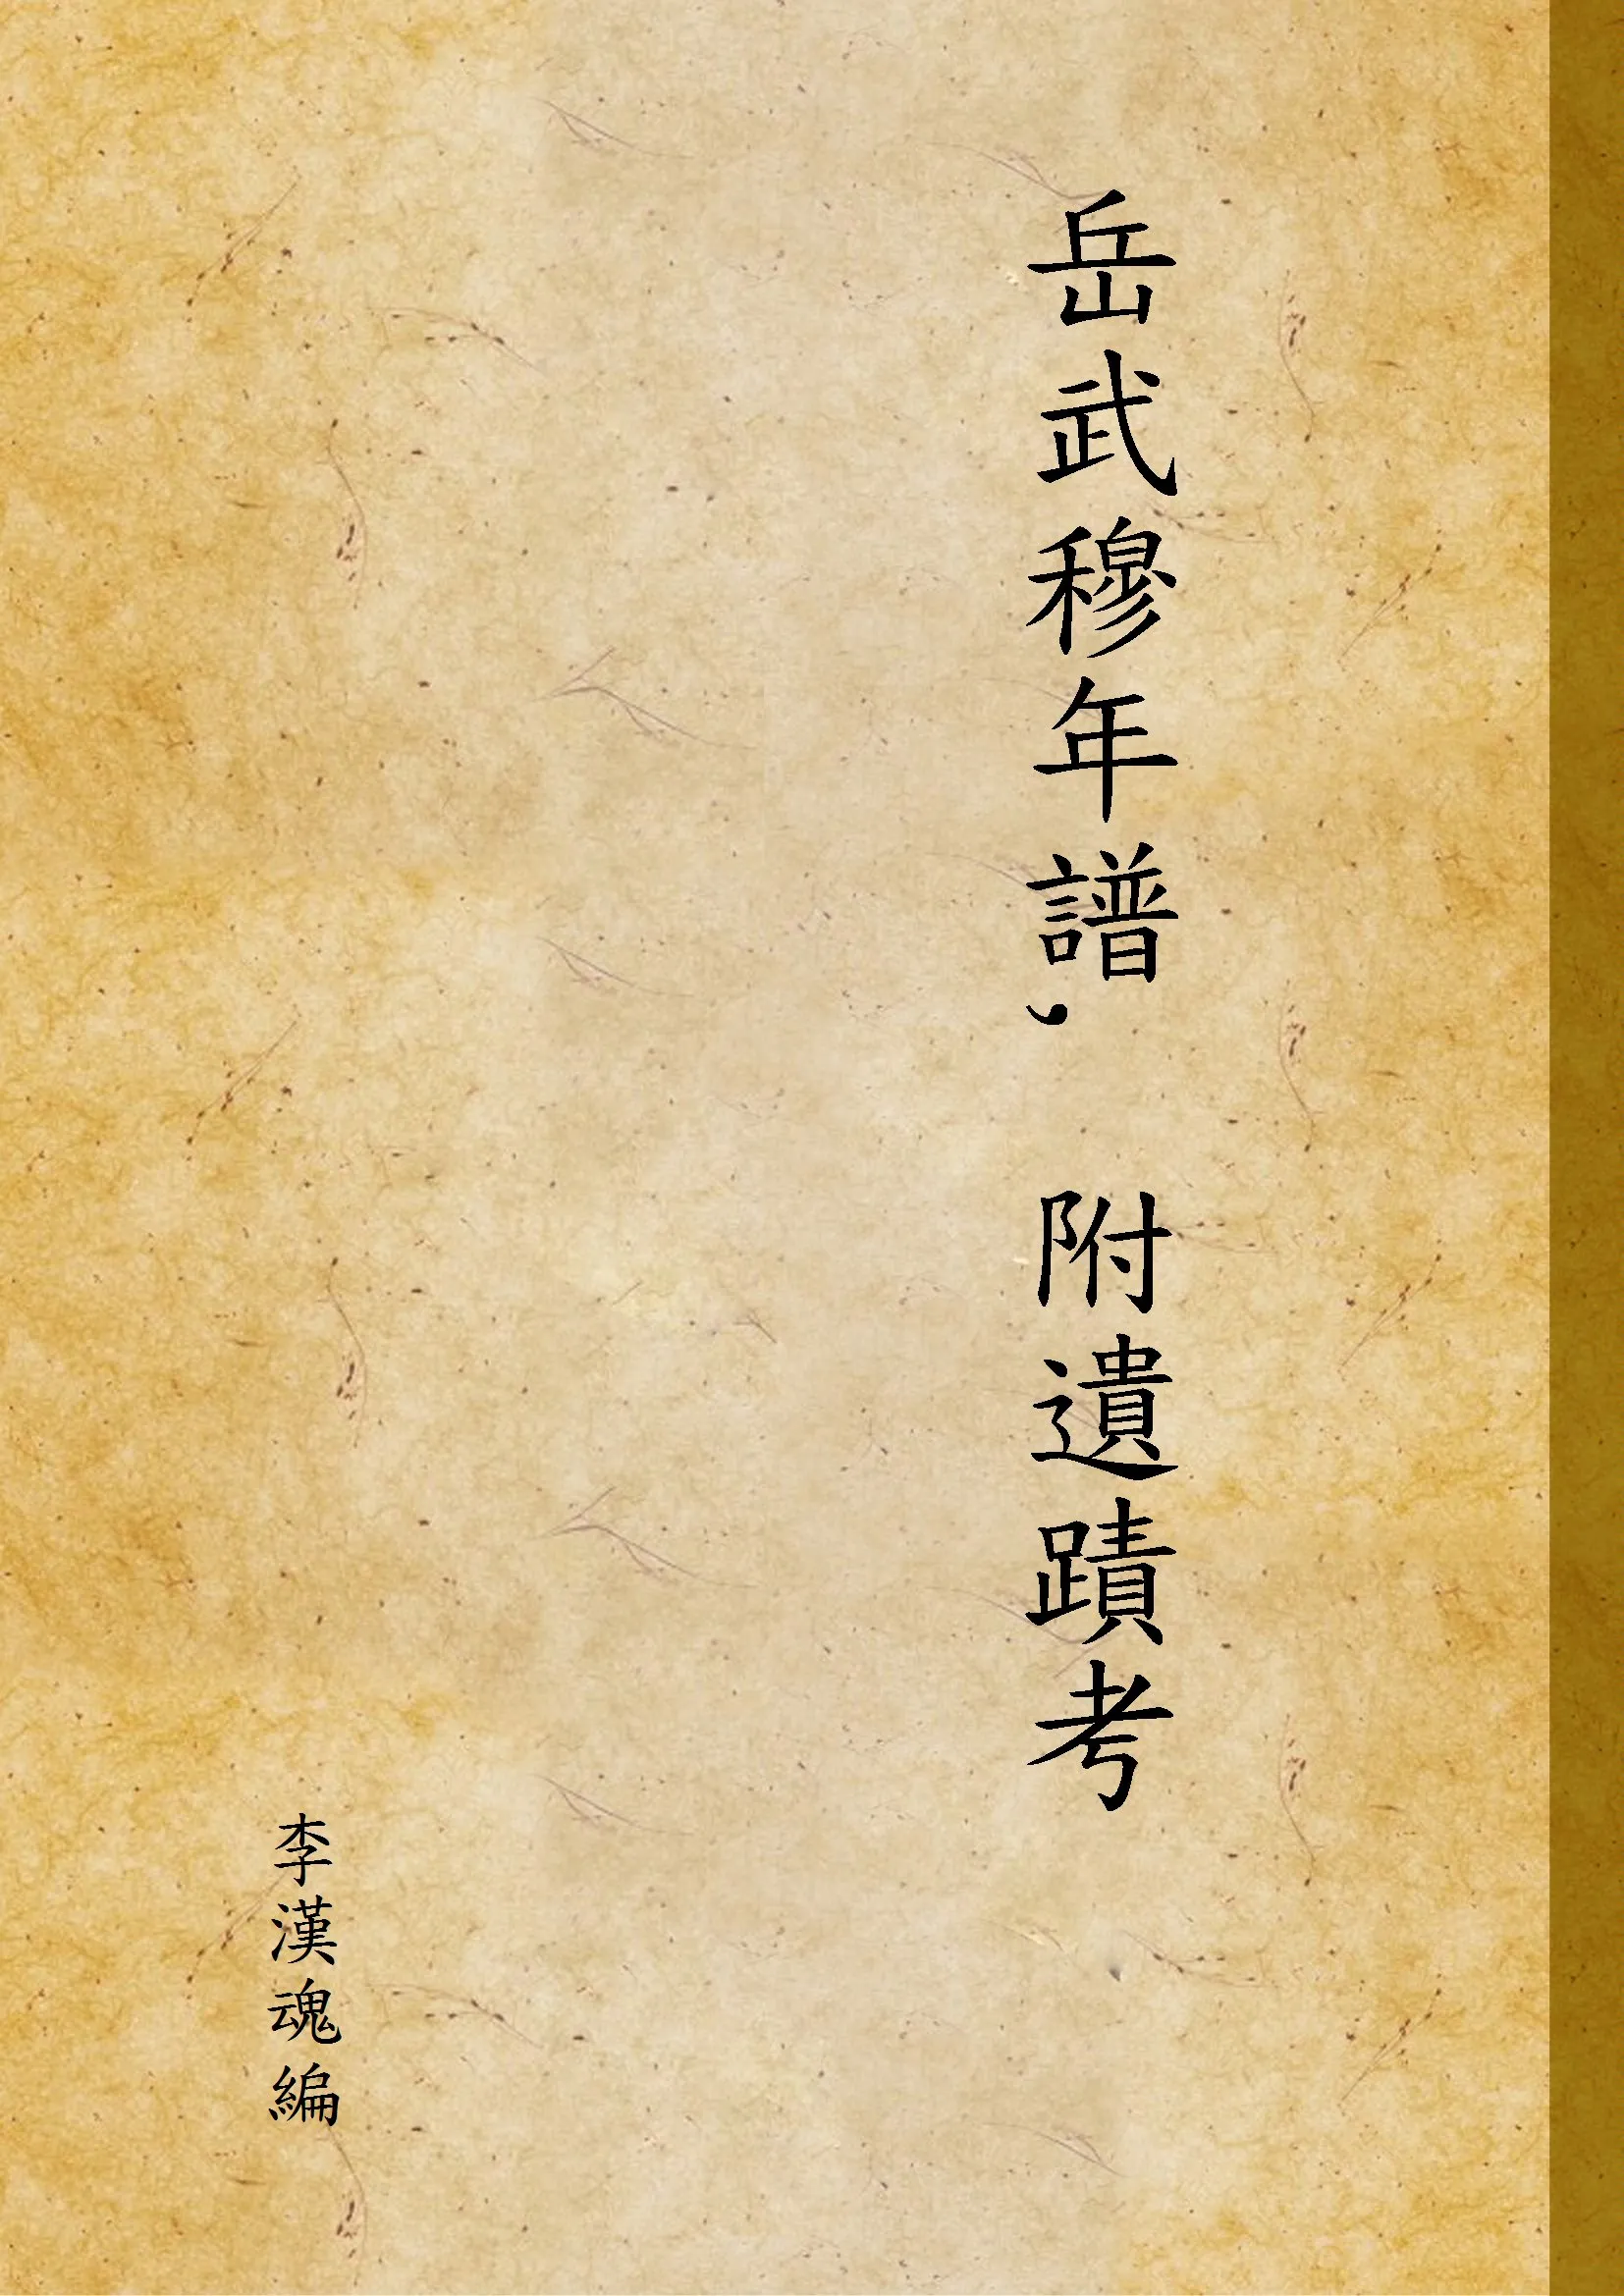 岳武穆年譜, 附遺蹟考
李漢魂編